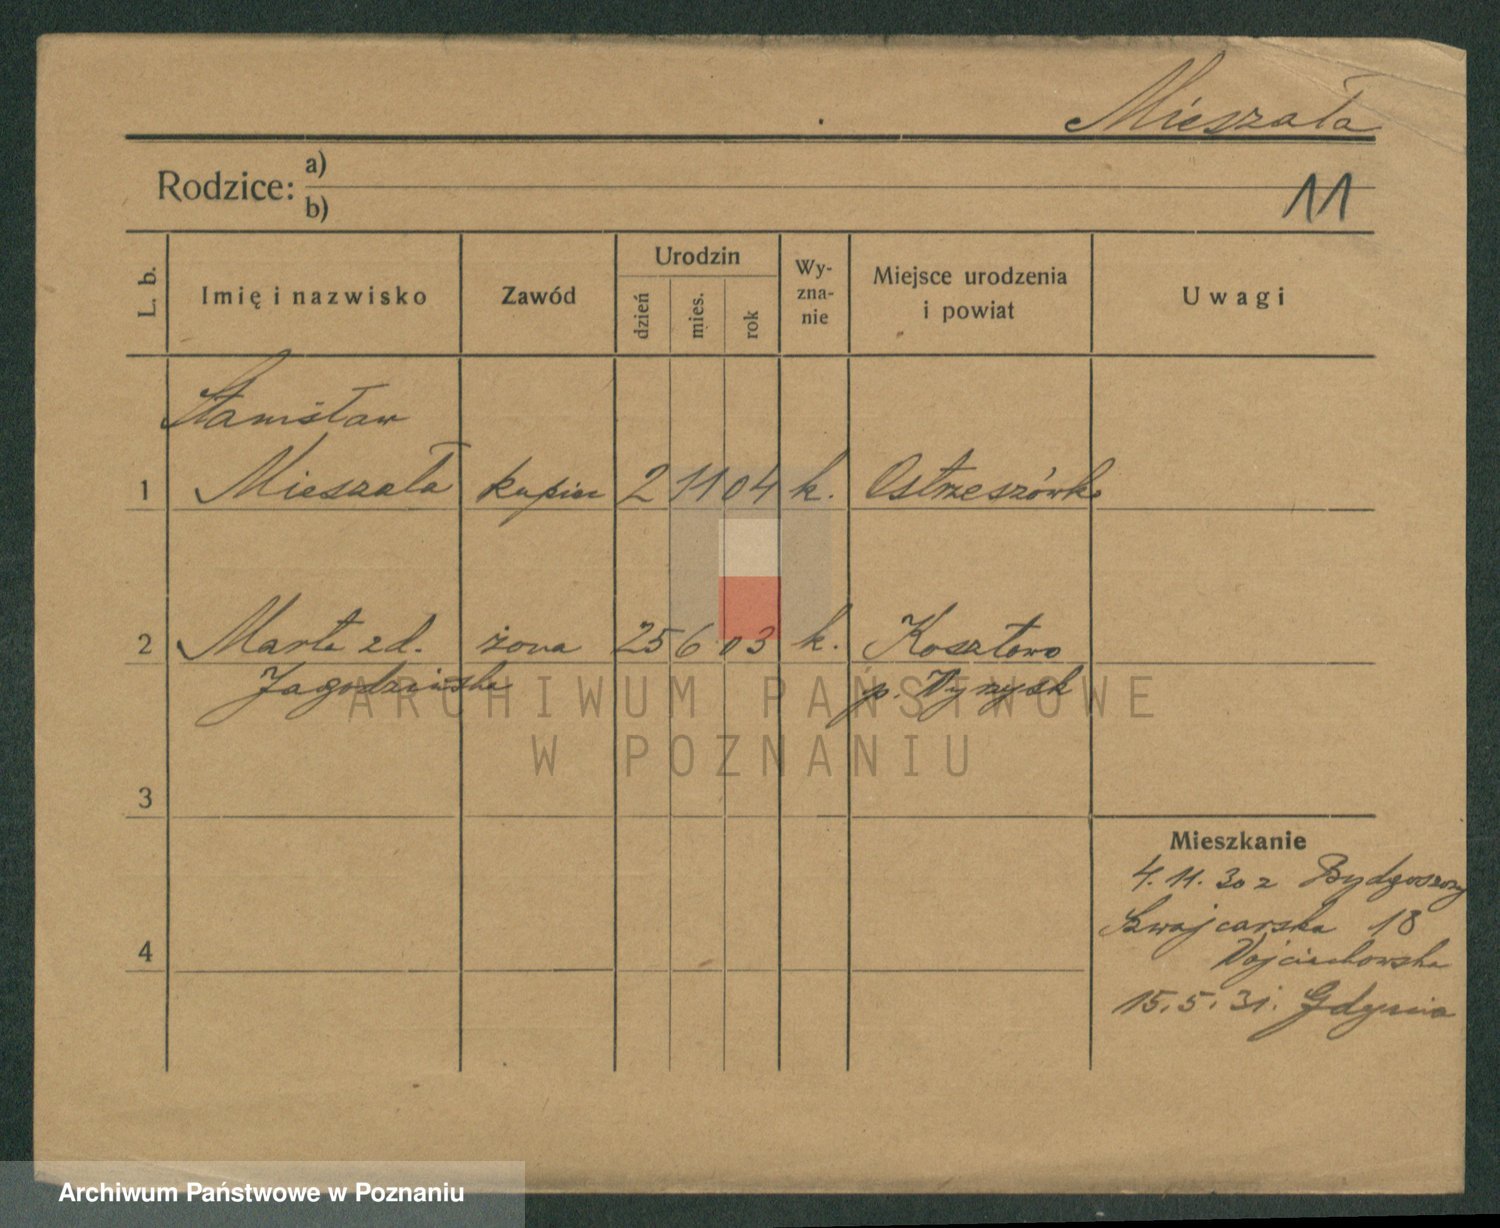 Mieszała
Rodzice: a)
b)
11
L. b.
Imię i nazwisko
Zawód
Urodzin
dzień
mies.
rok
Wy-
zna-
nie
Miejsce urodzenia
i powiat
Uwagi
Stanisław
1 Mieszała kupiec 2 11 04 k. Ostrzeszówko
2 Marta zd. żona 25 6 03 k. Kosztowo
Jagodzińska p. Wyrzysk
ARCHIWUM PAŃSTWOWE
W POZNANIU
3
Mieszkanie
4. 11. 30 z Bydgoszczy
Szwajcarska 18
4
Wojciechowska
15. 5. 31. Gdynia
Archiwum Państwowe w Poznaniu